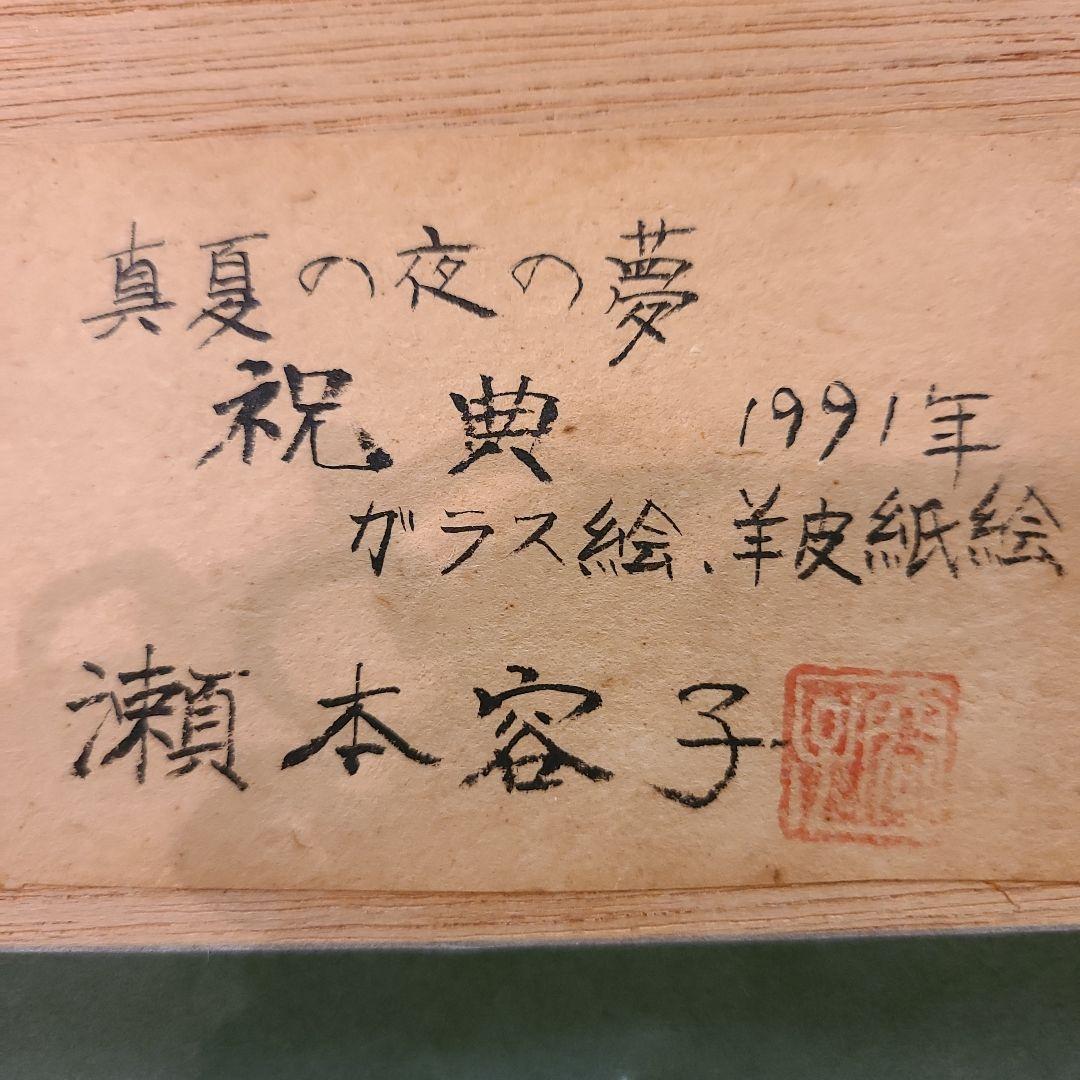 真夏の夜の夢
祝典 1991年
ガラス絵、羊皮紙絵
瀬本容子